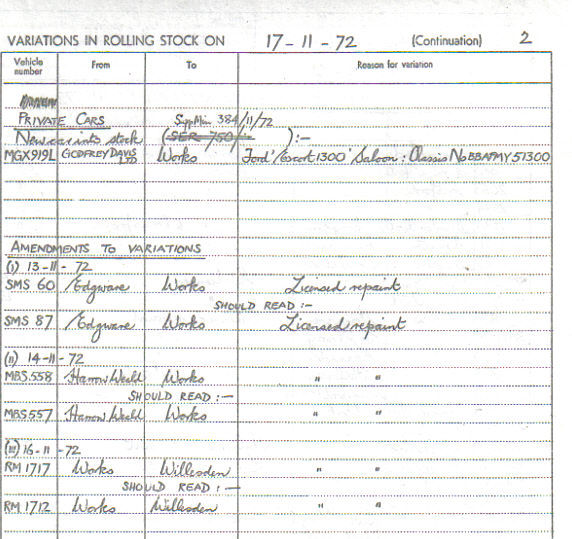 VARIATIONS IN ROLLING STOCK ON 17-11-72 (Continuation) 2
Vehicle number From To Reason for variation
PRIVATE CARS Supp Min 384/11/72
New car into stock (SER 750/ ):-
MGX919L GODFREY DAVIS LTD Works Ford 'Escort 1300' Saloon: Chassis No BBAPMY51300
AMENDMENTS TO VARIATIONS
(i) 13-11-72
SMS 60 Edgware Works Licensed repaint
SHOULD READ :-
SMS 87 Edgware Works Licensed repaint
(ii) 14-11-72
MBS.558 Harrow Weald Works " "
SHOULD READ :-
MBS557 Harrow Weald Works " "
(iii) 16-11-72
RM 1717 Works Willesden " "
SHOULD READ :-
RM 1712 Works Willesden " "